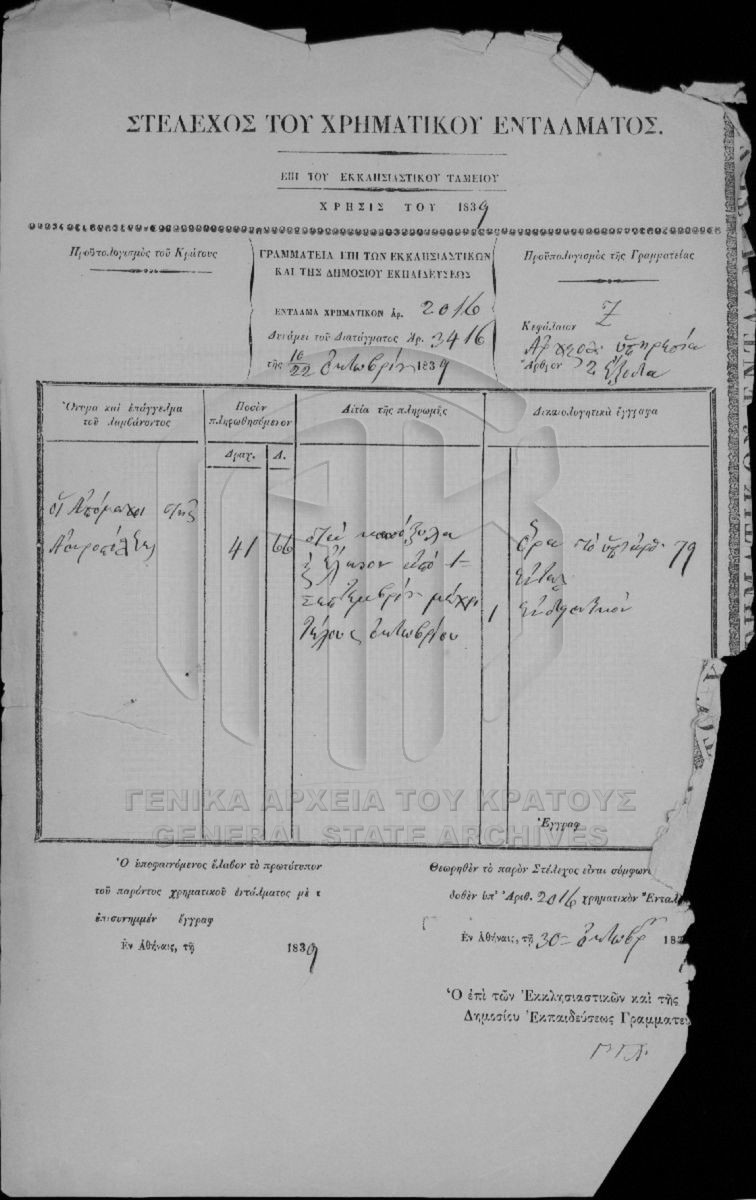 ΣΤΕΛΕΧΟΣ ΤΟΥ ΧΡΗΜΑΤΙΚΟΥ ΕΝΤΑΛΜΑΤΟΣ.
ΕΠΙ ΤΟΥ ΕΚΚΛΗΣΙΑΣΤΙΚΟΥ ΤΑΜΕΙΟΥ
ΧΡΗΣΙΣ ΤΟΥ 1839
Προϋπολογισμὸς τοῦ Κράτους
ΓΡΑΜΜΑΤΕΙΑ ΕΠΙ ΤΩΝ ΕΚΚΛΗΣΙΑΣΤΙΚΩΝ
ΚΑΙ ΤΗΣ ΔΗΜΟΣΙΟΥ ΕΚΠΑΙΔΕΥΣΕΩΣ
ΕΝΤΑΛΜΑ ΧΡΗΜΑΤΙΚΟΝ ἀρ. 2016
Δυνάμει τοῦ Διατάγματος Ἀρ. 3416
τῆς 10/22 Ὀκτωβρίου 1839
Προϋπολογισμὸς τῆς Γραμματείας
Κεφάλαιον Ζ
ὑπηρεσία
Ἄρθρον 2 ἔξοδα
Ὄνομα καὶ ἐπάγγελμα
τοῦ λαμβάνοντος
Ποσὸν
πληρωθησόμενον
Δραχ. Λ.
Αἰτία τῆς πληρωμῆς
Δικαιολογητικὰ ἔγγραφα
οἱ Ἀπόμαχοι τῆς
Ἀκροπόλεως
41 66
ἔλαβον ἀπὸ 1
Σεπτεμβρίου μέχρι
τέλους Ὀκτωβρίου
ὅρα τὸ ὑπ' ἀρ. 79
ἔνταλ
1
Ἔγγραφ
ΓΕΝΙΚΑ ΑΡΧΕΙΑ ΤΟΥ ΚΡΑΤΟΥΣ
GENERAL STATE ARCHIVES
Ὁ ὑποφαινόμενος ἔλαβον τὸ πρωτότυπον
τοῦ παρόντος χρηματικοῦ ἐντάλματος μὲ τ
ἐπισυνημμέν ἔγγραφ
Ἐν Ἀθήναις, τῇ 1839
Θεωρηθὲν τὸ παρὸν Στέλεχος εἶναι σύμφων
δοθὲν ὑπ' Ἀριθ. 2016 χρηματικὸν Ἔνταλ
Ἐν Ἀθήναις, τῇ 30 Ὀκτωβρ 183
Ὁ ἐπὶ τῶν Ἐκκλησιαστικῶν καὶ τῆς
Δημοσίου Ἐκπαιδεύσεως Γραμματεὺ